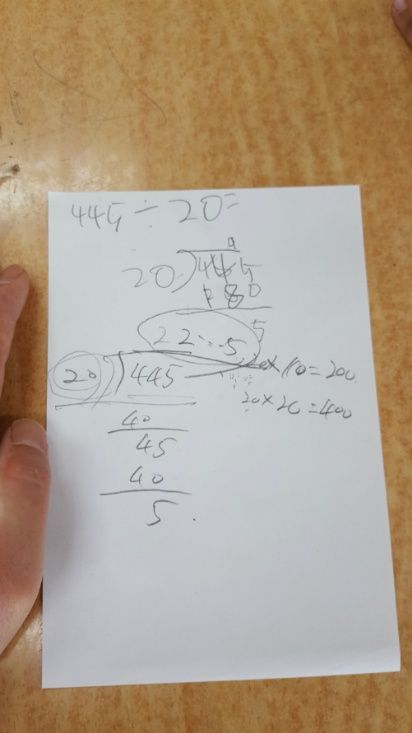 445 ÷ 20 =
9
20)445
180
5
22...5
20)445
20 × 10 = 200
20 × 20 = 400
40
45
40
5